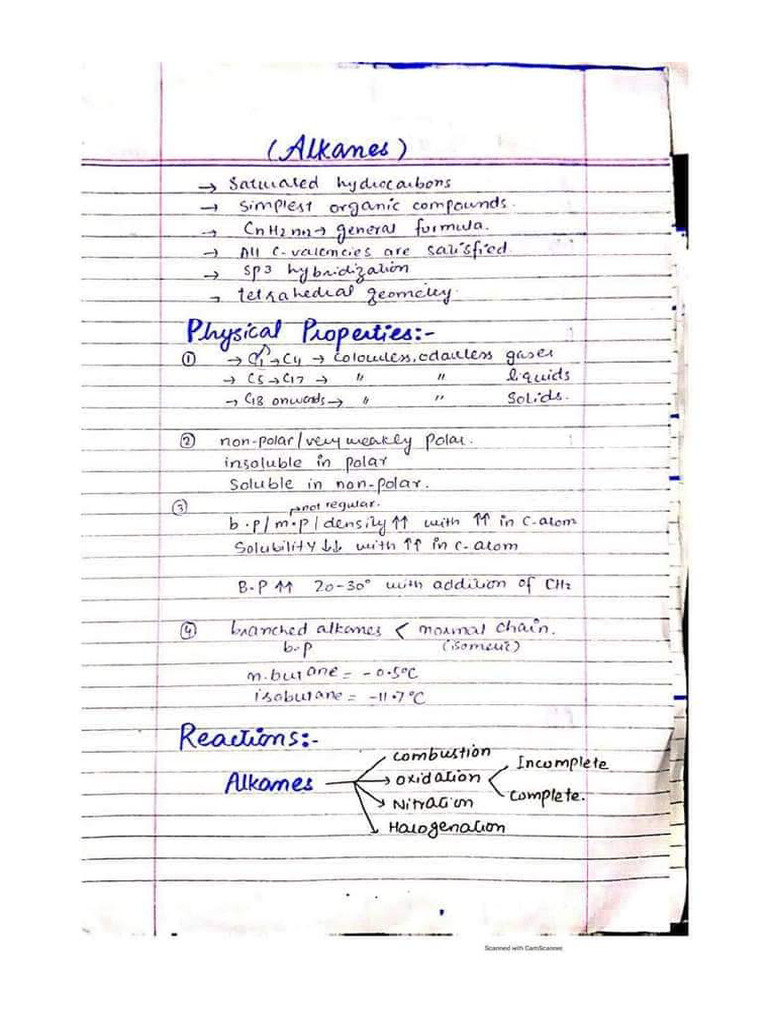 (Alkanes)
→ Saturated hydrocarbons
→ Simplest organic compounds.
→ CnH2nn2 → general formula.
→ All C-valencies are satisfied
→ SP3 hybridization
→ tetrahedral geometry.
Physical Properties:-
① → C1 → C4 → colourless, odourless gases
→ C5 → C17 → " " liquids
→ C18 onwards → " " Solids.
② non-polar/very weakly Polar.
insoluble in polar
Soluble in non-polar.
③ not regular.
b.p/m.p/density ↑↑ with ↑↑ in C-atom
Solubility ↓↓ with ↑↑ in C-atom
B.P ↑↑ 20-30° with addition of CH2
④ branched alkanes < normal chain.
b.p (isomeric)
n.butane = -0.5°C
isobutane = -11.7°C
Reactions:-
combustion
Incomplete
Alkanes → oxidation
complete.
Nitration
Halogenation
Scanned with CamScanner